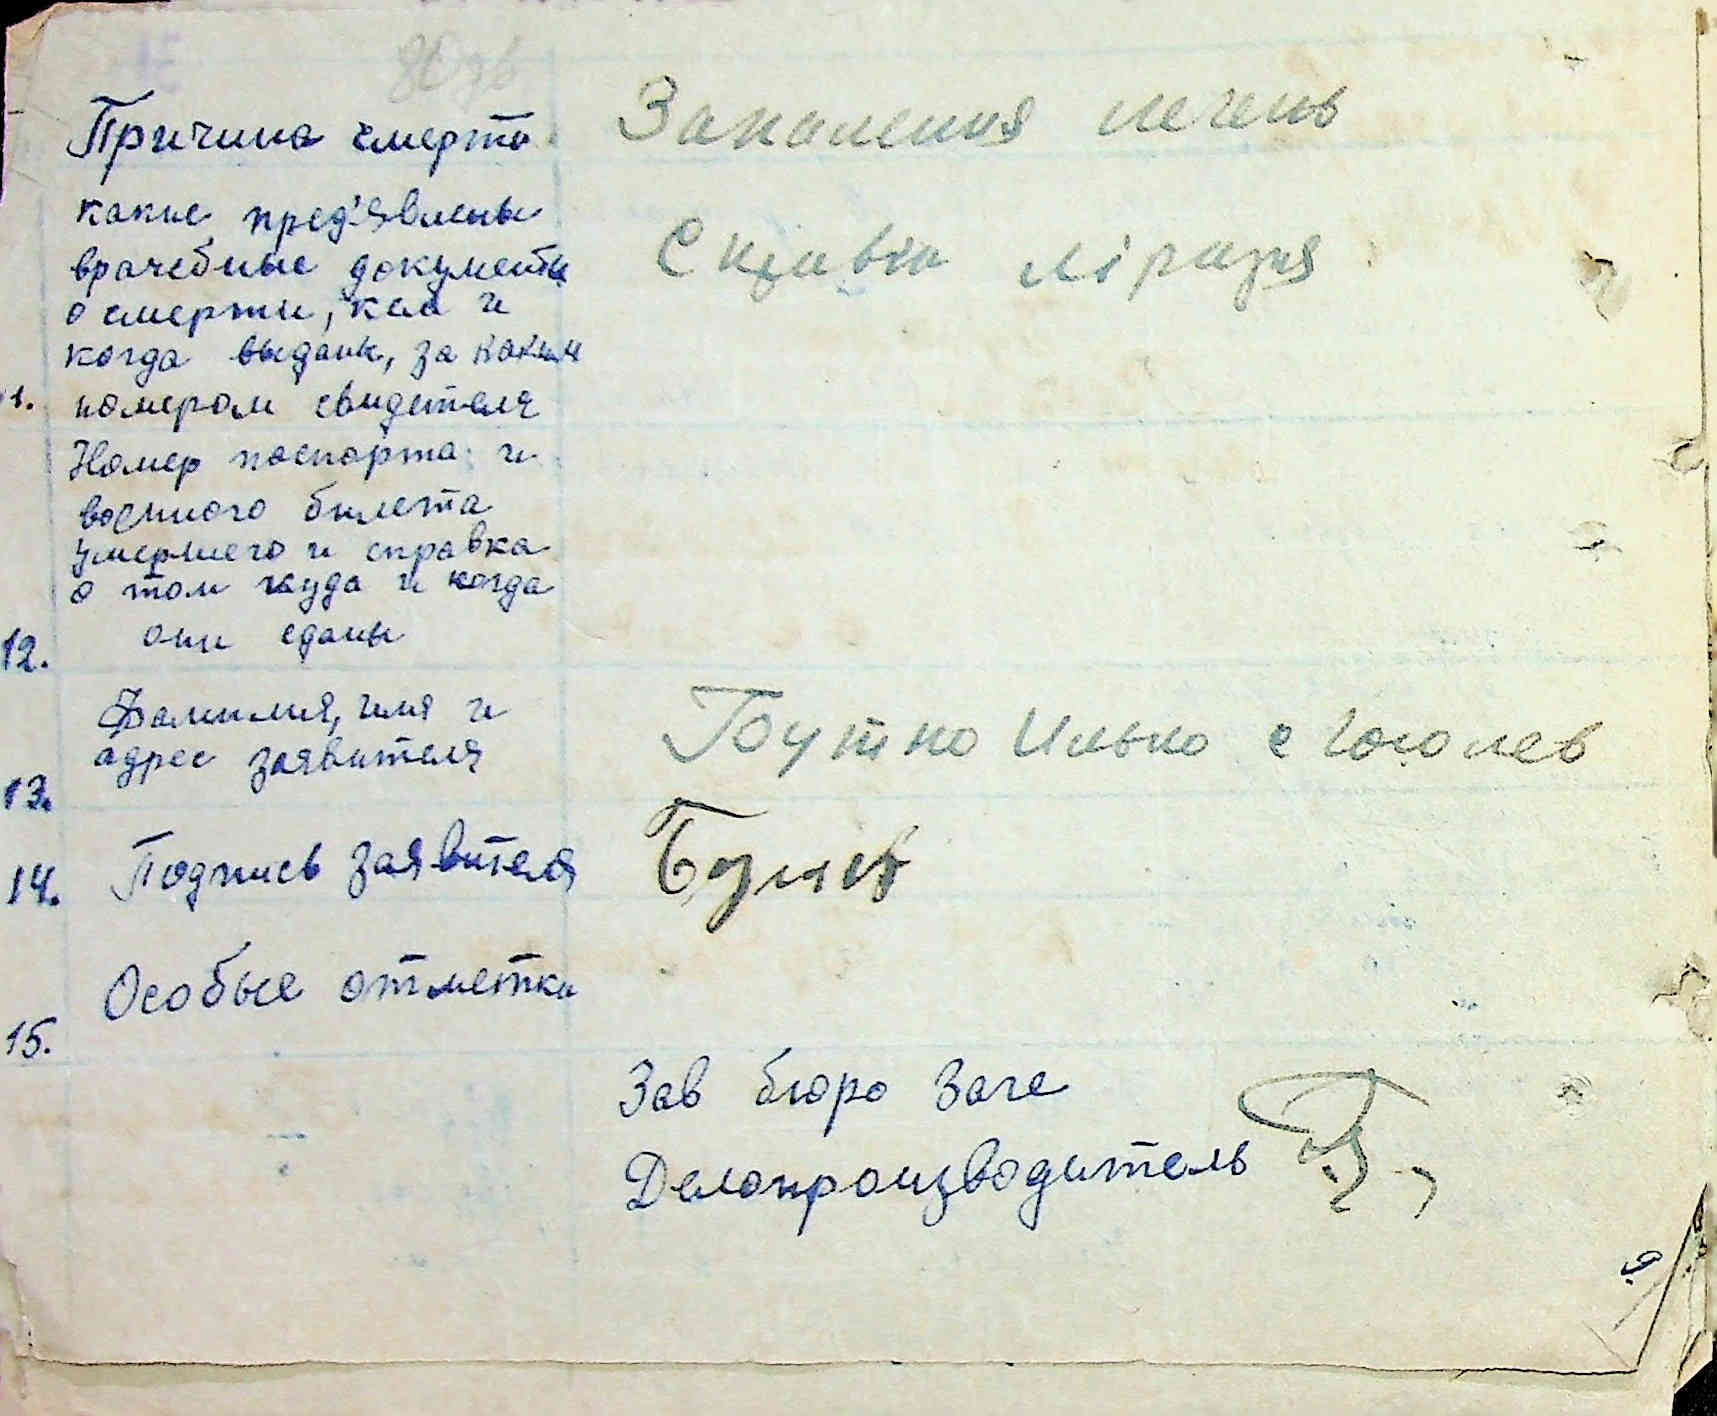 Причина смерти Запалення легень
какие пред'явлены
врачебные документы
о смерти, кем и
когда выданы, за каким
11. номером свидетеля
Номер паспорта и
военного билета
умершего и справка
о том куда и когда
12. они сданы
Фамилия, имя и
адрес заявителя
13.
Бутко Илько с Гоголев
14. Подпись заявителя
Особые отметки
15.
Зав бюро Загс
Делопроизводитель